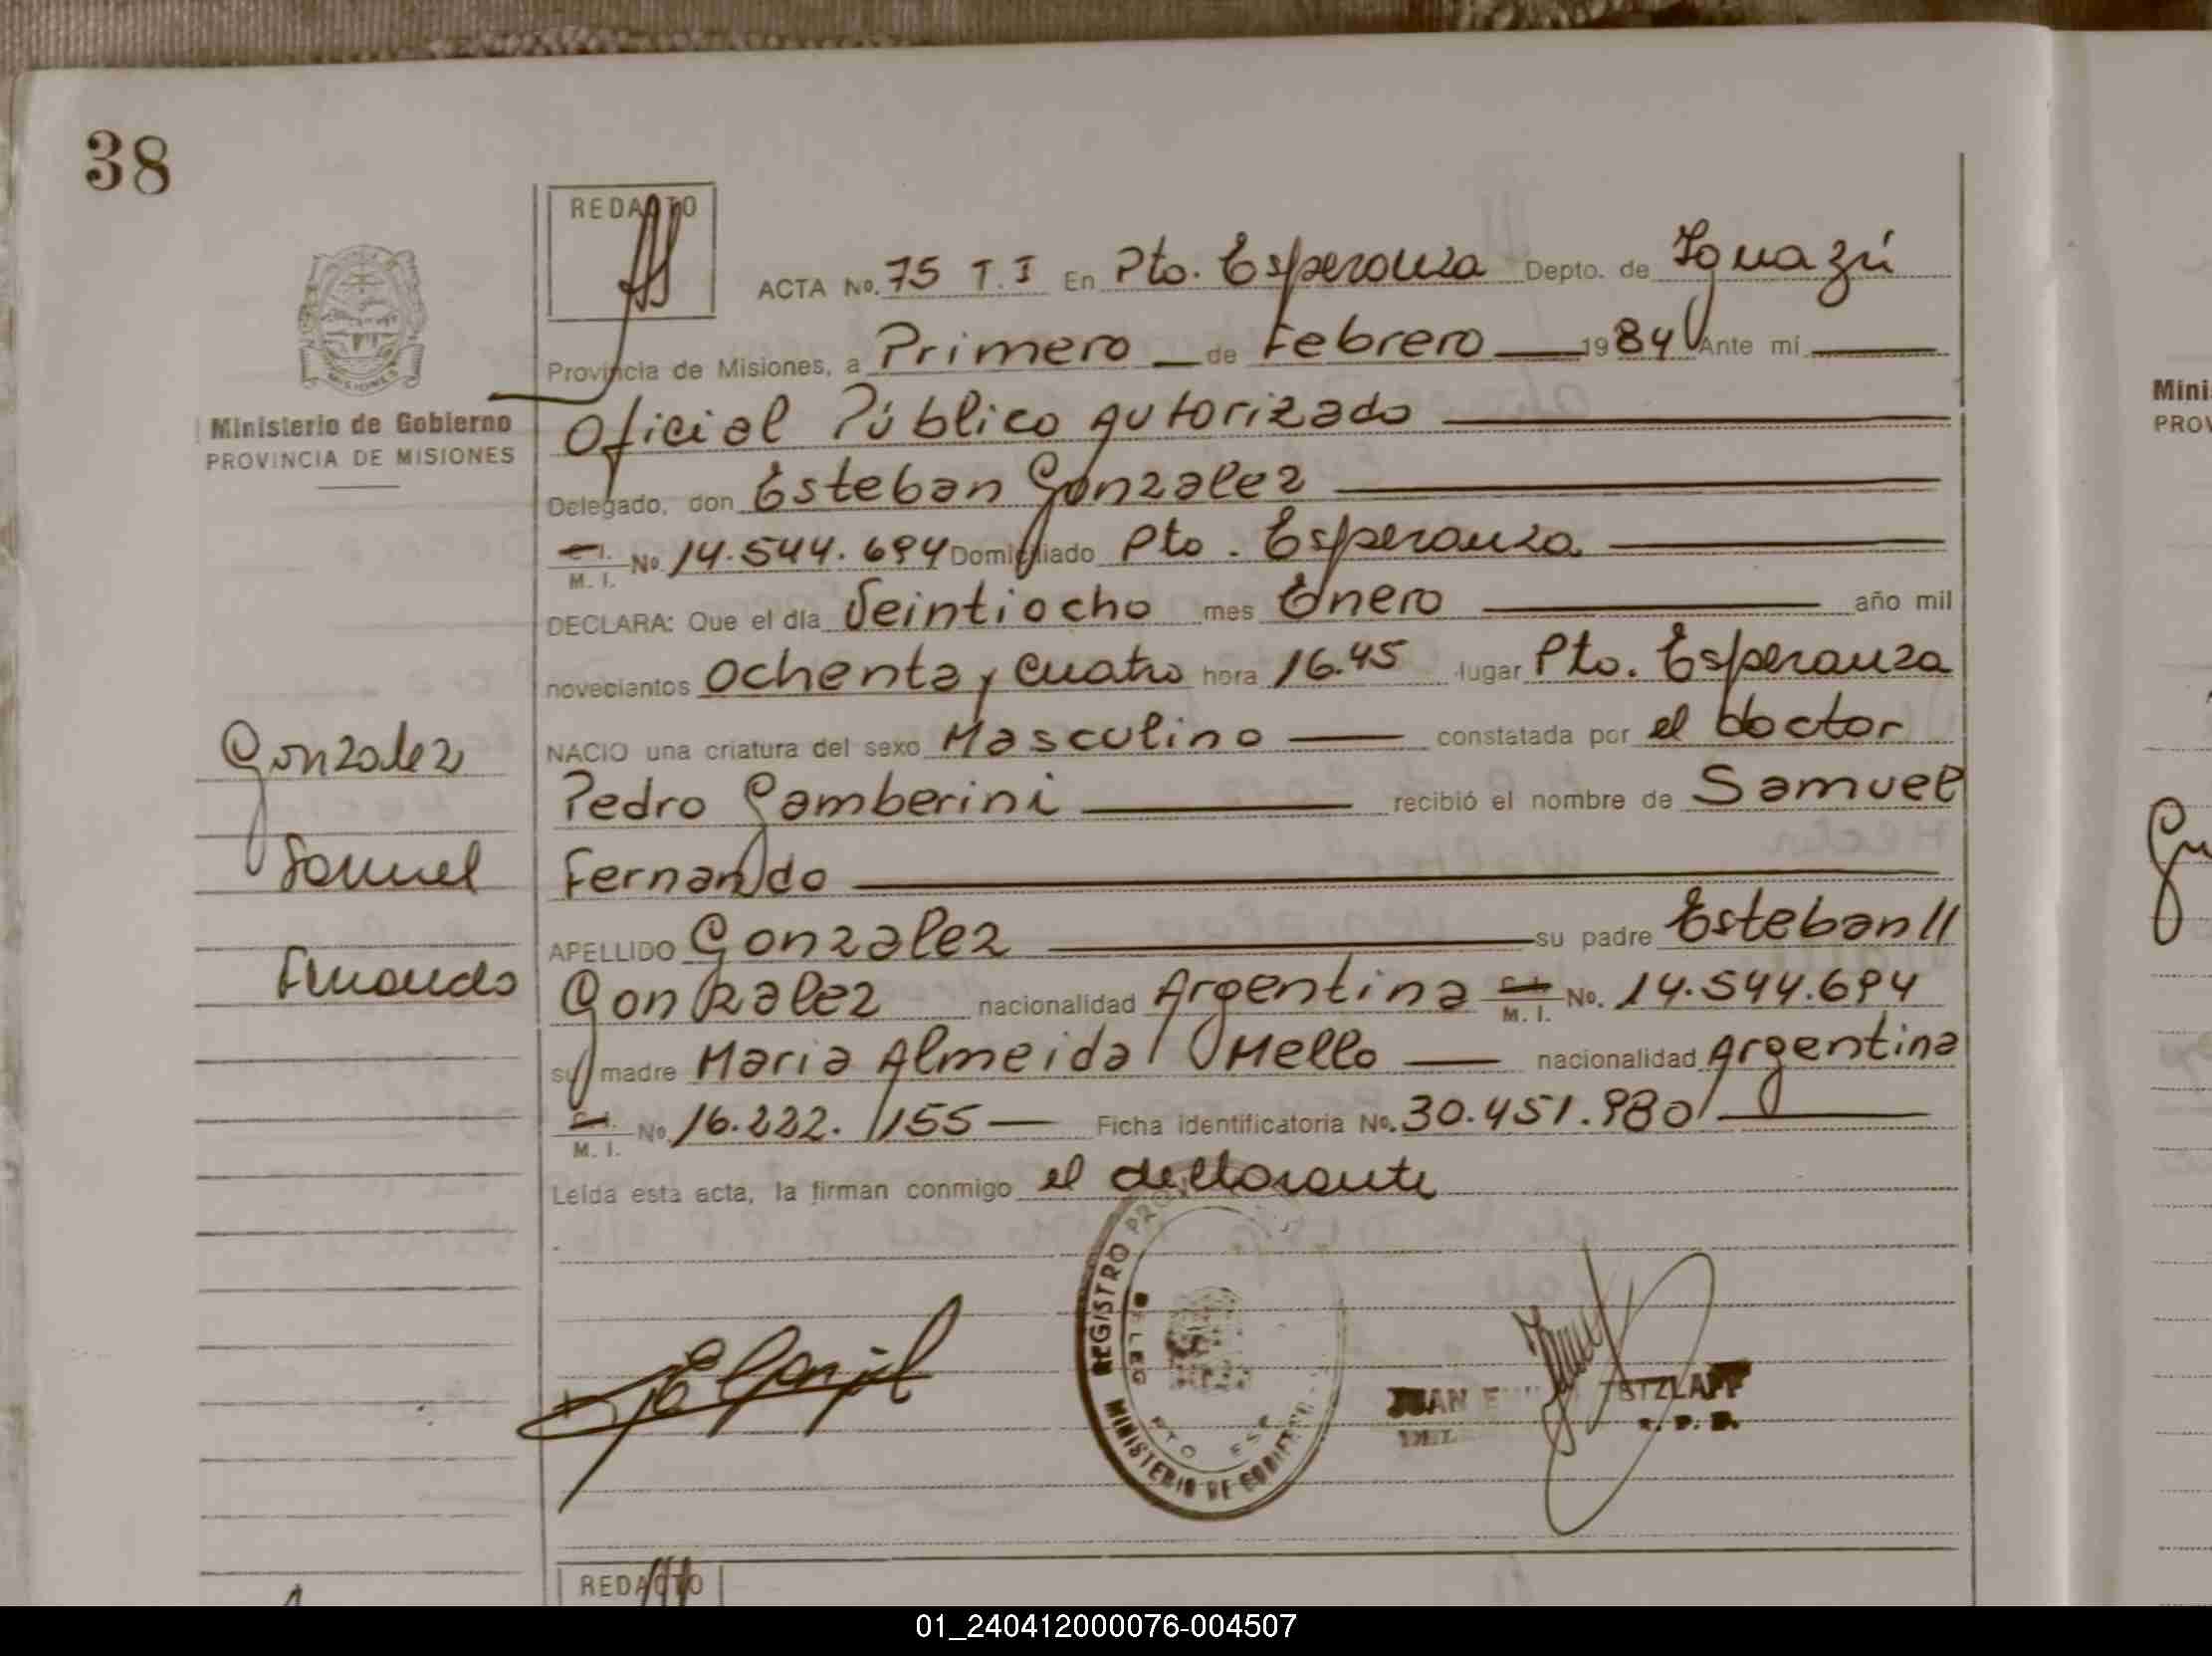 38
REDACTO
ACTA No. 75 T.I En Pto. Esperanza Depto. de Iguazú
Provincia de Misiones, a Primero de Febrero 1984 Ante mí
Oficial Público Autorizado
Ministerio de Gobierno
PROVINCIA DE MISIONES
Delegado, don Esteban Gonzalez
C.I. M. I. No 14.544.694 Domiciliado Pto. Esperanza
DECLARA: Que el día Veintiocho mes Enero año mil
novecientos Ochenta y Cuatro hora 16.45 lugar Pto. Esperanza
NACIO una criatura del sexo Masculino constatada por el doctor
Pedro Gamberini recibió el nombre de Samuel
Fernando
APELLIDO Gonzalez su padre Esteban
Gonzalez nacionalidad Argentina C.I. M. I. No. 14.544.694
su madre Maria Almeida Mello nacionalidad Argentina
C.I. M. I. No 16.222.155 Ficha identificatoria No. 30.451.980
Leída esta acta, la firman conmigo el declarante
Gonzalez
Samuel
Fernando
MISIONES
REGISTRO
DELEG
PTO ESP
MINISTERIO DE GOBIERNO
JUAN
REDACTO
Mini
PROV
01_240412000076-004507